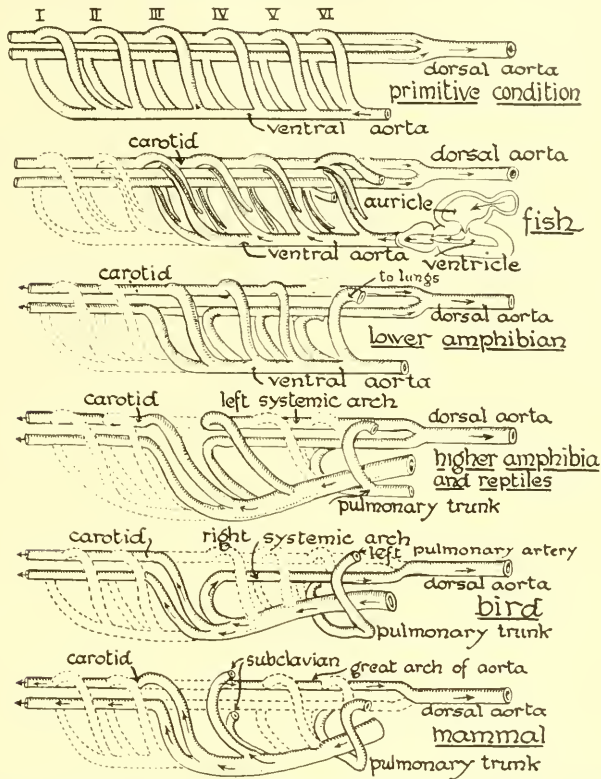 I II III IV V VI
dorsal aorta
primitive condition
ventral aorta
carotid
dorsal aorta
auricle
fish
ventral aorta
ventricle
carotid
to lungs
dorsal aorta
lower amphibian
ventral aorta
carotid
left systemic arch
dorsal aorta
higher amphibia
and reptiles
pulmonary trunk
carotid
right systemic arch
left pulmonary artery
dorsal aorta
bird
pulmonary trunk
carotid
subclavian
great arch of aorta
dorsal aorta
mammal
pulmonary trunk